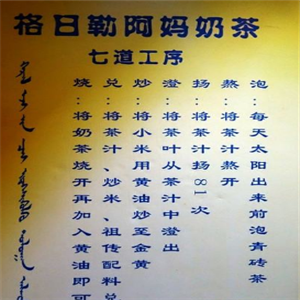 格日勒阿妈奶茶
七道工序
泡：每天太阳出来前泡青砖茶
熬：将茶汁熬开
扬：将茶汁扬81次
澄：将茶叶从茶汁中澄出
炒：将小米用黄油炒至金黄
兑：将茶汁、炒米、祖传配料兑
烧：将奶茶烧开再加入黄油即可